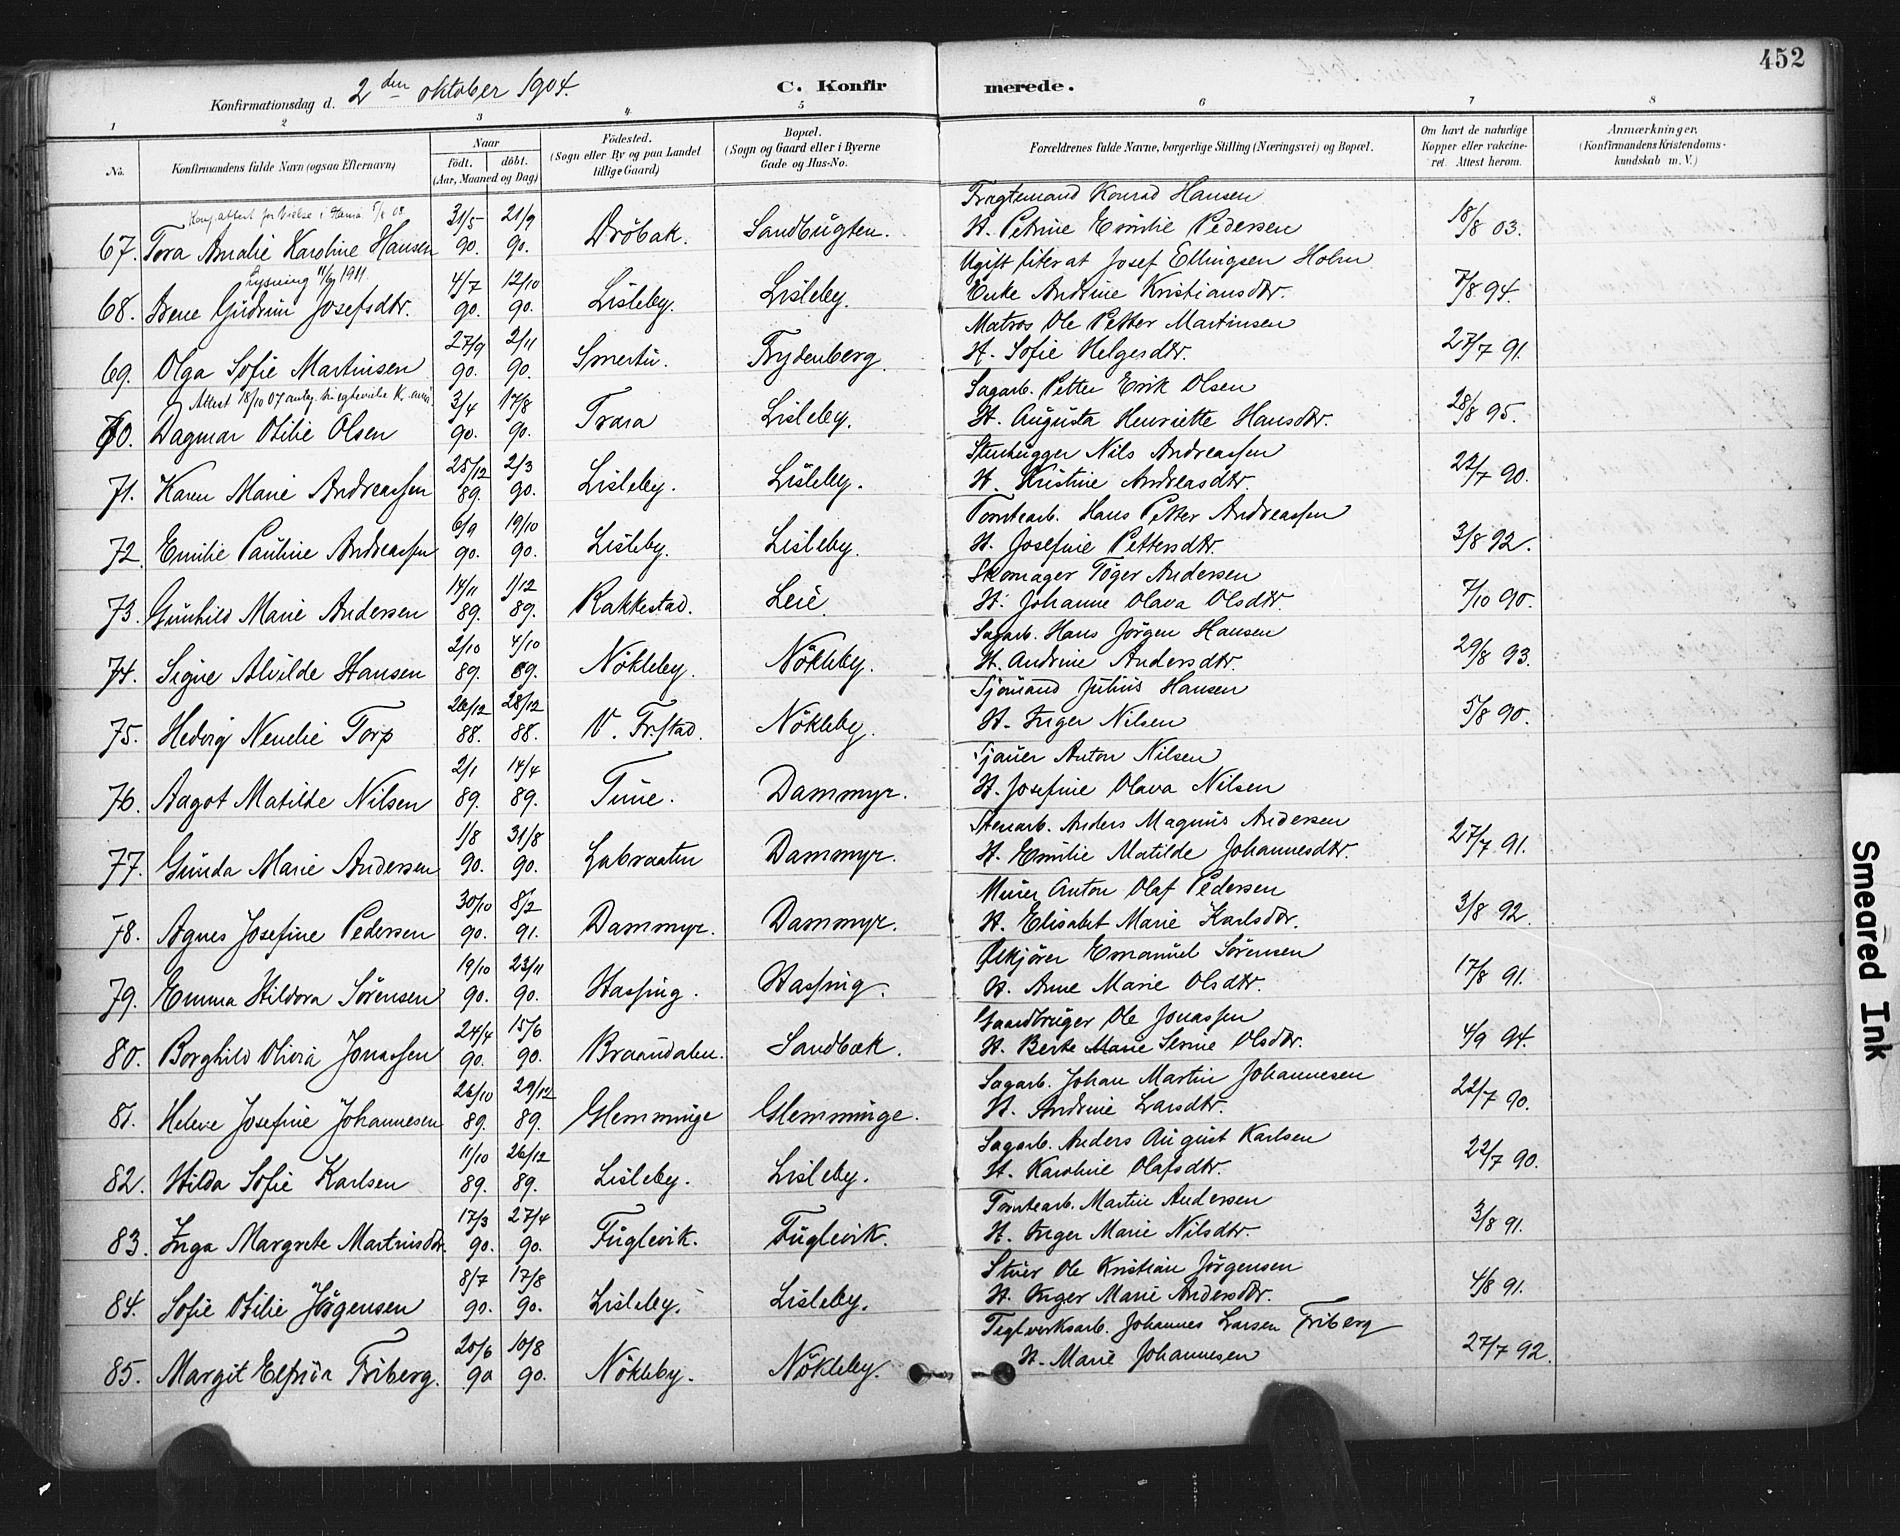 452
Konfirmationsdag d. 2 den oktober 1904. C. Konfirmerede.
1 2 3 4 5 6 7 8
No. Konfirmandens fulde Navn (ogsaa Efternavn) Naar født. døbt. (Aar, Maaned og Dag) Fødested. (Sogn eller By og paa Landet tillige Gaard) Bopæl. (Sogn og Gaard eller i Byerne Gade og Hus-No. Forældrenes fulde Navne, borgerlige Stilling (Næringsvei) og Bopæl. Om havt de naturlige Kopper eller vakcineret. Attest herom. Anmærkninger. (Konfirmandens Kristendomskundskab m. V.)
67. Tora Amalie Karoline Hansen 31/5 90. 21/9 90. Dröbak. Sandbugten. Fragtemand Konrad Hansen
H. Petrine Emilie Pedersen 18/8 03.
Lysning 1911
68. Irene Gudrun Josefsdtr. 4/7 90. 12/10 90. Lisleby. Lisleby. Ugift literat Josef Ellingsen Holm
Enke Andrine Kristiansdtr. 7/8 94.
69. Olga Sofie Martinsen 27/9 90. 2/11 90. Smertu. Frydenberg. Matros Ole Petter Martinsen
H. Sofie Helgesdtr. 27/7 91.
Attest 18/10 07
70. Dagmar Otilie Olsen 3/4 90. 17/8 90. Trara Lisleby. Sagarb. Petter Erik Olsen
H. Augusta Henriette Hansdtr. 28/8 95.
71. Karen Marie Andreassen 25/12 89. 2/3 90. Lisleby. Lisleby. Stenhugger Nils Andreassen
H. Kristine Andreasdtr. 22/7 90.
72. Emilie Pauline Andreassen 6/9 90. 19/10 90. Lisleby. Lisleby. Tomtearb. Hans Petter Andreassen
H. Josefine Pettersdtr. 3/8 92.
73. Gunhild Marie Andersen 14/11 89. 1/12 89. Rakkestad. Leie Skomager Töger Andersen
H. Johanne Olava Olsdtr. 7/10 90.
74. Signe Alvilde Hansen 2/10 89. 4/10 89. Nökleby. Nökleby. Sagarb. Hans Jörgen Hansen
H. Andrine Andersdtr. 29/8 93.
75. Hedvig Nenelie Torp 26/12 88. 28/12 88. V. Fr.stad. Nökleby. Sjömand Julius Hansen
H. Inger Nilsen 5/8 90.
76. Aagot Matilde Nilsen 2/1 89. 14/4 89. Tune. Dammyr. Sjauer Anton Nilsen
H. Josefine Olava Nilsen
77. Gunda Marie Andersen 1/8 90. 31/8 90. Labraaten Dammyr. Stenarb. Anders Magnus Andersen
H. Emilie Matilde Johannesdtr. 27/7 91.
78. Agnes Josefine Pedersen 30/10 90. 8/2 91. Dammyr. Dammyr. Murer Anton Olaf Pedersen
H. Elisabet Marie Karlsdtr. 3/8 92.
79. Emma Hildora Sörensen 19/10 90. 23/11 90. Hassing. Hassing. Ølkjörer Emanuel Sörensen
H. Anne Marie Olsdtr. 17/8 91.
80. Borghild Olivia Jonassen 24/4 90. 15/6 90. Braandalen. Sandbæk. Gaardbruger Ole Jonassen
H. Berte Marie Serine Olsdtr. 4/9 94.
81. Helene Josefine Johannesen 26/10 89. 29/12 89. Glemminge Glemminge. Sagarb. Johan Martin Johannesen
H. Andrine Larsdtr. 22/7 90.
82. Hilda Sofie Karlsen 11/10 89. 26/12 89. Lisleby. Lisleby. Sagarb. Anders August Karlsen
H. Karoline Olafsdtr. 22/7 90.
83. Inga Margrete Martinsdtr. 17/3 90. 27/4 90. Fuglevik. Fuglevik. Tomtearb. Martin Andersen
H. Inger Marie Nilsdtr. 3/8 91.
84. Sofie Otilie Jörgensen 8/7 90. 17/8 90. Lisleby. Lisleby. Stuer Ole Kristian Jörgensen
H. Inger Marie Andersdtr. 4/8 91.
85. Margit Elfrida Friberg. 20/6 90 10/8 90. Nökleby. Nökleby. Teglverksarb. Johannes Larsen Friberg
H. Marie Johannesen 27/7 92.
Smeared Ink